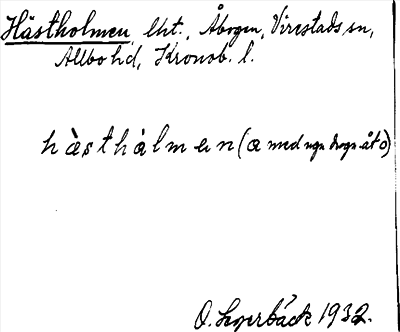 Hästholmen, lht., Åbogen, Virestads sn,
Allbo hd, Kronob. l.
hàsthàlmen (a med ngn dragn. åt o)
O. Lagerbäck 1932.